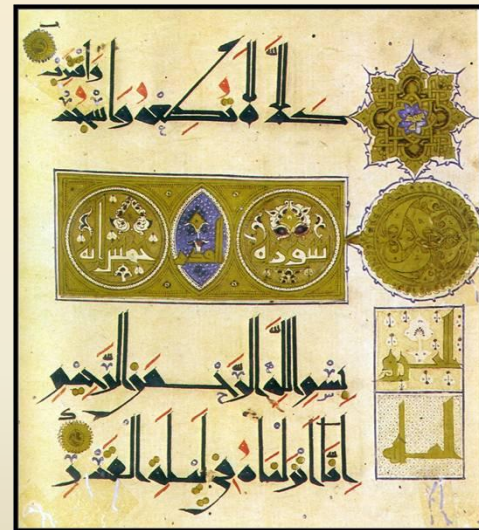 كَلَّا لَا تُطِعْهُ وَاسْجُدْ وَاقْتَرِبْ
سورة خمس اية
بِسْمِ اللَّهِ الرَّحْمَنِ الرَّحِيمِ
اِنَّا اَنْزَلْنَاهُ فِي لَيْلَةِ الْقَدْرِ